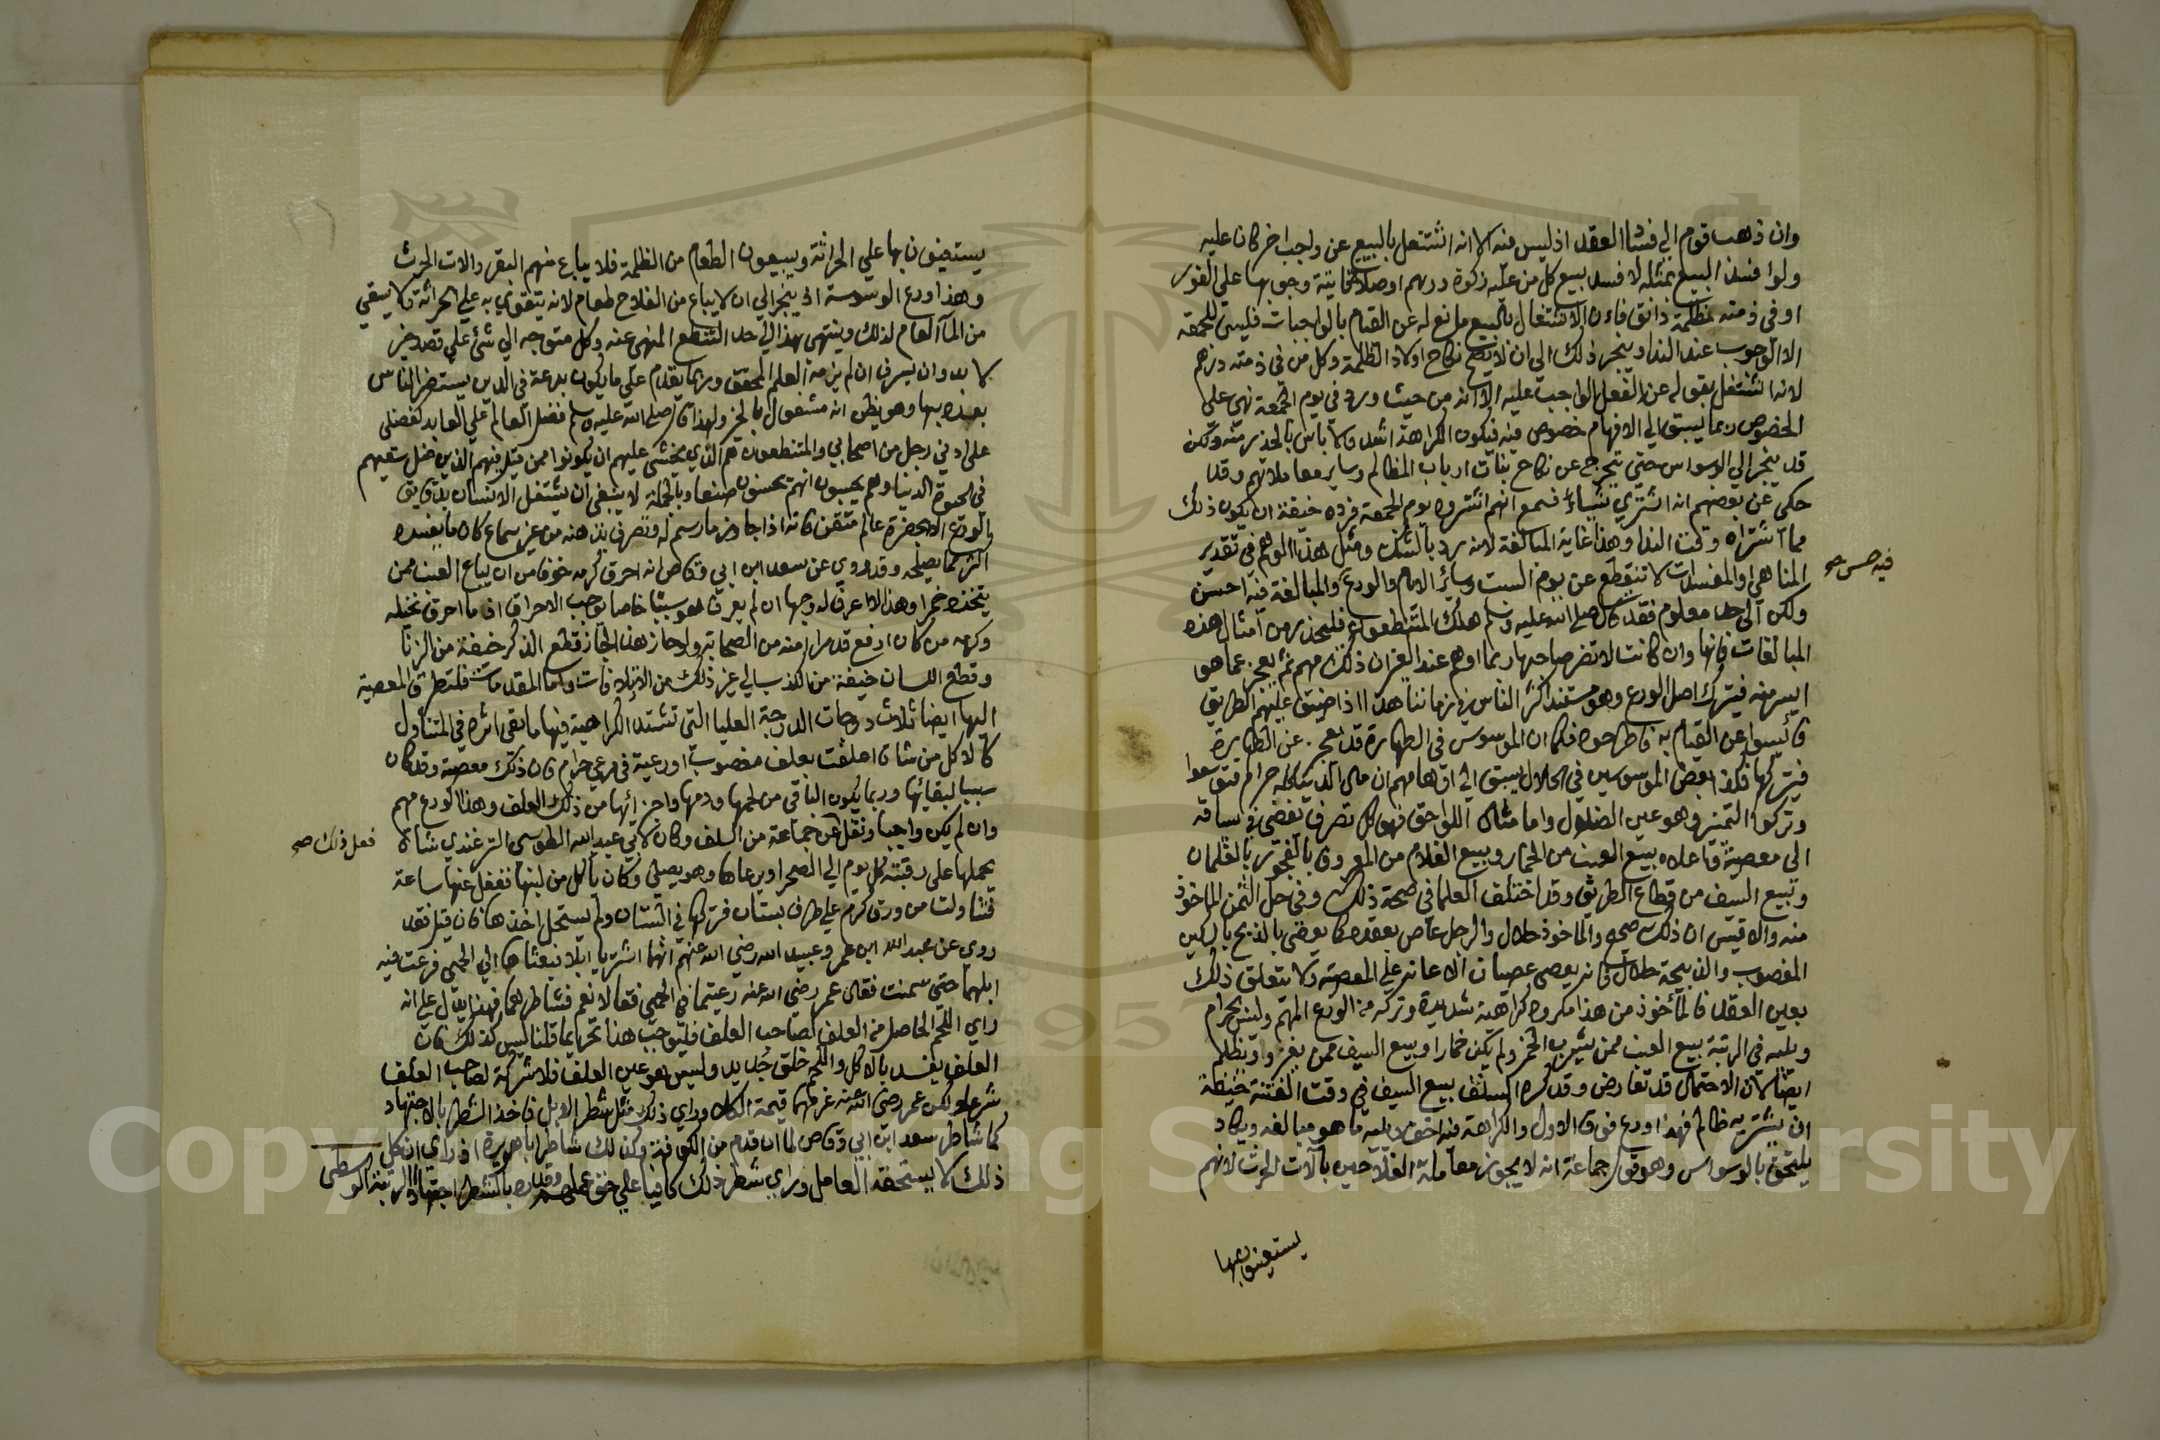 وان ذهب قوم الي فساد العقد اذ ليس فيه الا انه اشتغل بالبيع عن واجب اخر كان عليه
ولو افسد البيع بمثله لافسد بيع كل من عليه زكوة درهم او صلاة فايتة وجوبها علي الفور
او في ذمته مظلمة دانق فان الاشتغال بالبيع مانع له عن القيام بالواجبات فليس للجمعة
الا الوجوب عند الندا وينجر ذلك الي ان لا يصح نكاح اولاد الظلمة وكل من في ذمته درهم
لانه اشتغل بقوله عن الفعل الواجب عليه الا انه من حيث ورد في يوم الجمعة نهي علي
الخصوص ربما يسبق الي الافهام خصوص فيه فيكون الكراهة اشد ولا باس بالحذر منه ولكن
قد ينجر الي الوسواس حتي يتحرج عن نكاح بنات ارباب المظالم وساير معاملاتهم وقد
حكي عن بعضهم انه اشتري شيئا فسمع انهم اشتروه يوم الجمعة فرده خيفة ان يكون ذلك
مما اشتراه وقت الندا وهذا غاية المبالغة لانه رد بالشك ومثل هذا الوهم في تقدير
المناهي او المفسدات لا تنقطع عن يوم السبت وساير الايام والورع والمبالغة فيه احسن
فيه حسن صح
ولكن الي حد معلوم فقد قال صلي الله عليه وسلم هلك المتنطعون فليحذر من امثال هذه
المبالغات فانها وان كانت لا تضر صاحبها ربما اوهم عند الغير ان ذلك مهم ثم يعجز عما هو
ايسر منه فيترك اصل الورع وهو مستند اكثر الناس في زماننا هذا اذ ضيق عليهم الطريق
فأيسوا عن القيام به فاطرحوه فكما ان الموسوس في الطهارة قد يعجز عن الطهارة
فيتركها فكذا بعض الموسوسين في الحلال يسبق الي اوهامهم ان مال الدنيا كله حرام فتوسعوا
وتركوا التميز وهو عين الضلال واما مثال اللواحق فهو كل تصرف تفضي في سياقه
الي معصية واعلاه بيع العنب من الخمار وبيع الغلام من المعروف بالفجور بالغلمان
وبيع السيف من قطاع الطريق وقد اختلف العلما في صحة ذلك وفي حل الثمن الماخوذ
منه والاقيس ان ذلك صحيح والماخوذ حلال والرجل عاص بعقده كما يعصي بالذبح بالسكين
المغصوب والذبيحة حلال فانه يعصي عصيان الاعانة علي المعصية ولا يتعلق ذلك
بعين العقد فالمأخوذ من هذا مكروه كراهية شديدة وتركه من الورع المهم وليس بحرام
ويليه في الرتبة بيع العنب ممن يشرب الخمر ولم يكن خمارا وبيع السيف ممن يغزو ويظلم
ايضا لان الاحتمال قد تعارض وقد كره السلف بيع السيف في وقت الفتنة خيفة
ان يشتريه ظالم فهذا ورع فوق الاول والكراهة فيه اخف ويليه ما هو مبالغة ويكاد
يلتحق بالوسواس وهو قول جماعة انه لا يجوز معاملة الفلاحين بآلات الحرث لانهم
يستعينون بها
يستعينون بها علي الحراثة ويبيعون الطعام من الظلمة فلا يباع منهم البقر والات الحرث
وهذا ورع الوسوسة اذ ينجر الي ان لا يباع من الفلاح طعام لانه يتقوي به علي الحراثة ولا يسقي
من الماء العام لذلك وينتهي هذا الي حد التنطع المنهي عنه وكل متوجه الي شئ علي قصد خير
لا بد وان يسرف ان لم يزمه العلم المحقق وربما يقدم علي ما يكون بدعة في الدين يستضر الناس
بعده بها وهو يظن انه مشغول بالخير ولهذا قال صلي الله عليه وسلم فضل العالم علي العابد كفضلي
علي ادني رجل من اصحابي والمتنطعون هم الذي يخشي عليهم ان يكونوا ممن قيل فيهم الذين ضل سعيهم
في الحيوة الدنيا وهم يحسبون انهم يحسنون صنعا وبالجملة لا ينبغي ان يشتغل الانسان بدقايق
الورع الا بحضرة عالم متقن فانه اذا جاوز ما رسم له وتصرف بذهنه من غير سماع كان ما يفسده
اكثر مما يصلحه وقد روي عن سعد ابن ابي وقاص انه احرق كرمه خوفا من ان يباع العنب ممن
يتخذه خمرا وهذا لا اعرف له وجها ان لم يعرف هو سببا خاصا يوجب الاحراق اذ ما احرق نخيله
وكرمه من كان ارفع قدرا منه من الصحابة ولو جاز هذا لجاز قطع الذكر خيفة من الزنا
وقطع اللسان خيفة من الكذب الي غير ذلك من الاتلافات واما المقدمات فلتطرق المعصية
اليها ايضا ثلاث درجات الدرجة العليا التي تشتد الكراهية فيها ما بقي اثره في المتناول
كالاكل من شاة اعلفت بعلف مغصوب او رعية في مرعي حرام فان ذلك معصية وقد كان
سببا لبقائها وربما يكون الباقي من لحمها ودمها واجزائها من ذلك العلف وهذا الورع مهم
وان لم يكن واجبا ونقل عن جماعة من السلف وكان لابي عبد الله الطوسي الترغندي شاة
فعل ذلك صح
يحملها علي رقبته كل يوم الي الصحرا ويرعاها وهو يصلي وكان ياكل من لبنها فغفل عنها ساعة
فتناولت من ورق كرم علي طرف بستان فتركها في البستان ولم يستحل اخذها فان قيل فقد
روي عن عبد الله ابن عمر وعبيد الله رضي الله عنهم انهما اشتريا ابلا فبعثاها الي الحمي فرعت فيه
ابلهما حتي سمنت فقال عمر رضي الله عنه رعيتما في الحمي فقالا نعم فشاطرهما فهذا يدل علي انه
راي اللحم الحاصل من العلف لصاحب العلف فليوجب هذا تحريما قلنا ليس كذلك فان
العلف يفسد بالاكل واللحم خلق جديد وليس هو عين العلف فلا شركة لصاحب العلف
شرعا ولكن عمر رضي الله عنه غرمهما قيمة الكلا وراي ذلك مثل شطر الابل فاخذ الشطر بالاجتهاد
كما شاطر سعد ابن ابي وقاص لما ان قدم من الكوفة وكذلك شاطر ابا هريرة اذ راي ان كل
ذلك لا يستحقه العامل وراي شطر ذلك كافيا علي حق عملهم وقدره بالشطر اجتهادا الرتبة الوسطي